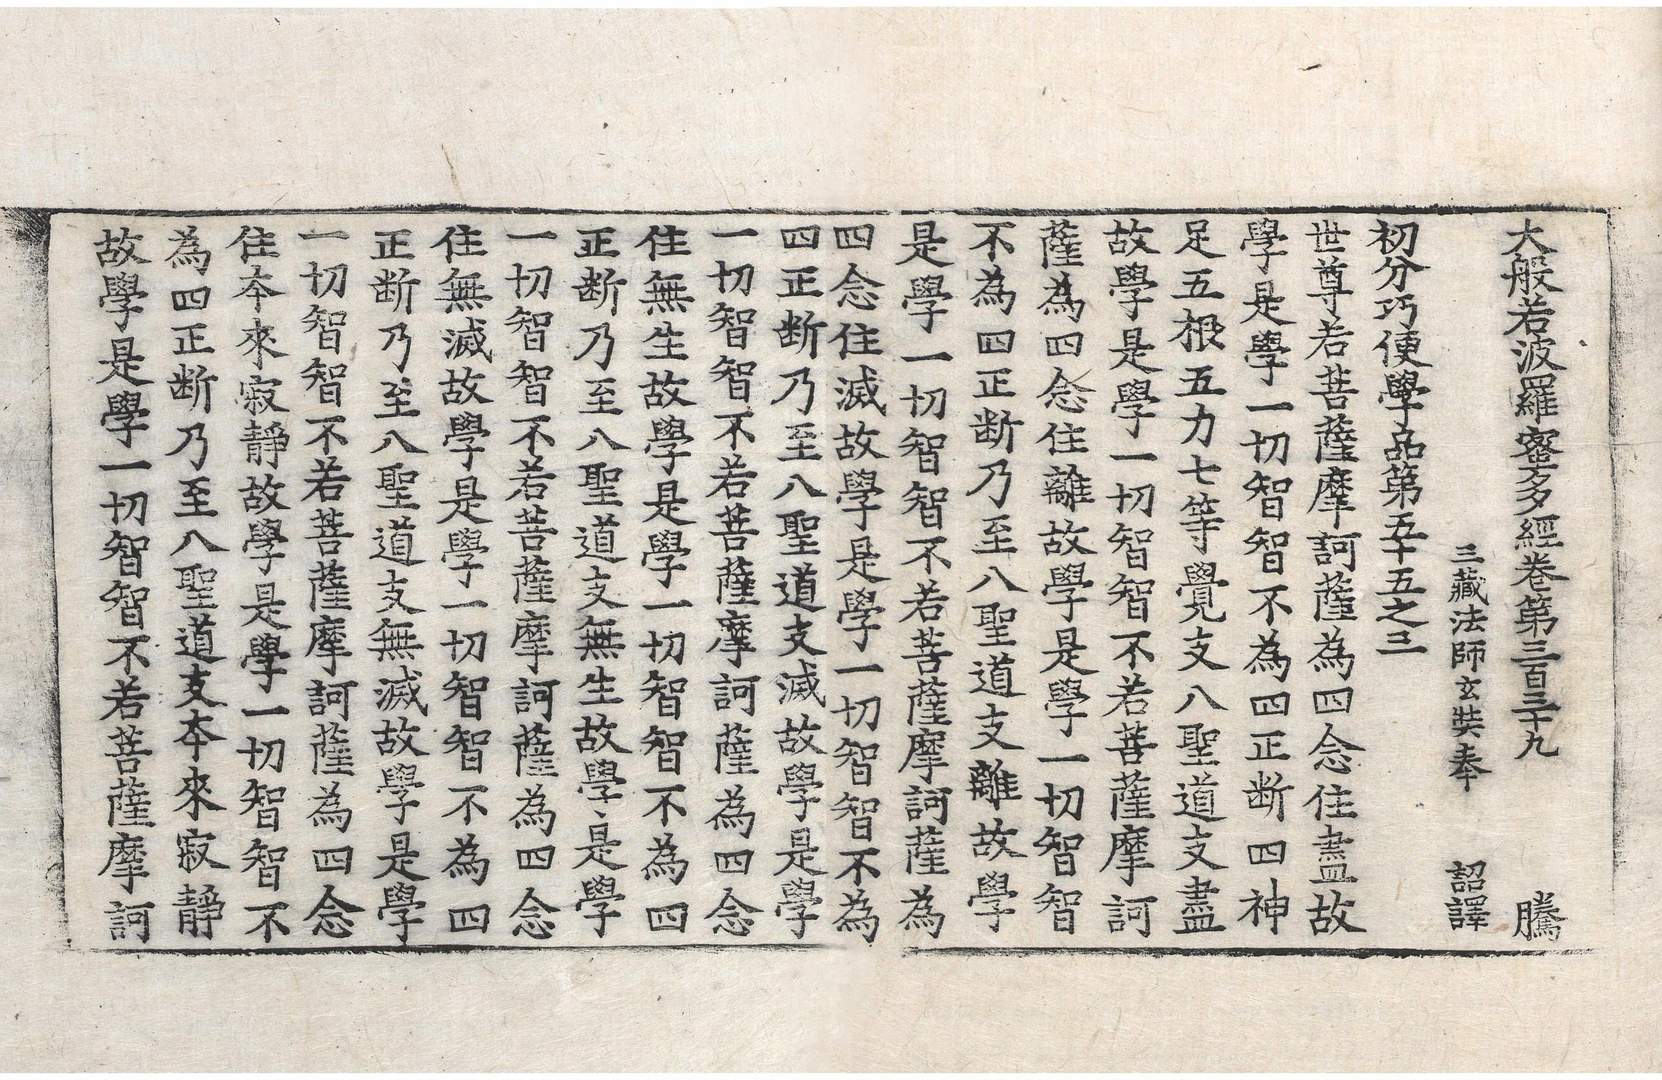 大般若波羅蜜多經卷第三百三十九 騰
三藏法師玄奘奉 詔譯
初分巧便學品第五十五之三
世尊若菩薩摩訶薩為四念住盡故
學是學一切智智不為四正断四神
足五根五力七等覺支八聖道支盡
故學是學一切智智不若菩薩摩訶
薩為四念住離故學是學一切智智
不為四正断乃至八聖道支離故學
是學一切智智不若菩薩摩訶薩為
四念住滅故學是學一切智智不為
四正断乃至八聖道支滅故學是學
一切智智不若菩薩摩訶薩為四念
住無生故學是學一切智智不為四
正断乃至八聖道支無生故學是學
一切智智不若菩薩摩訶薩為四念
住無滅故學是學一切智智不為四
正断乃至八聖道支無滅故學是學
一切智智不若菩薩摩訶薩為四念
住夲來寂靜故學是學一切智智不
為四正断乃至八聖道支夲來寂靜
故學是學一切智智不若菩薩摩訶